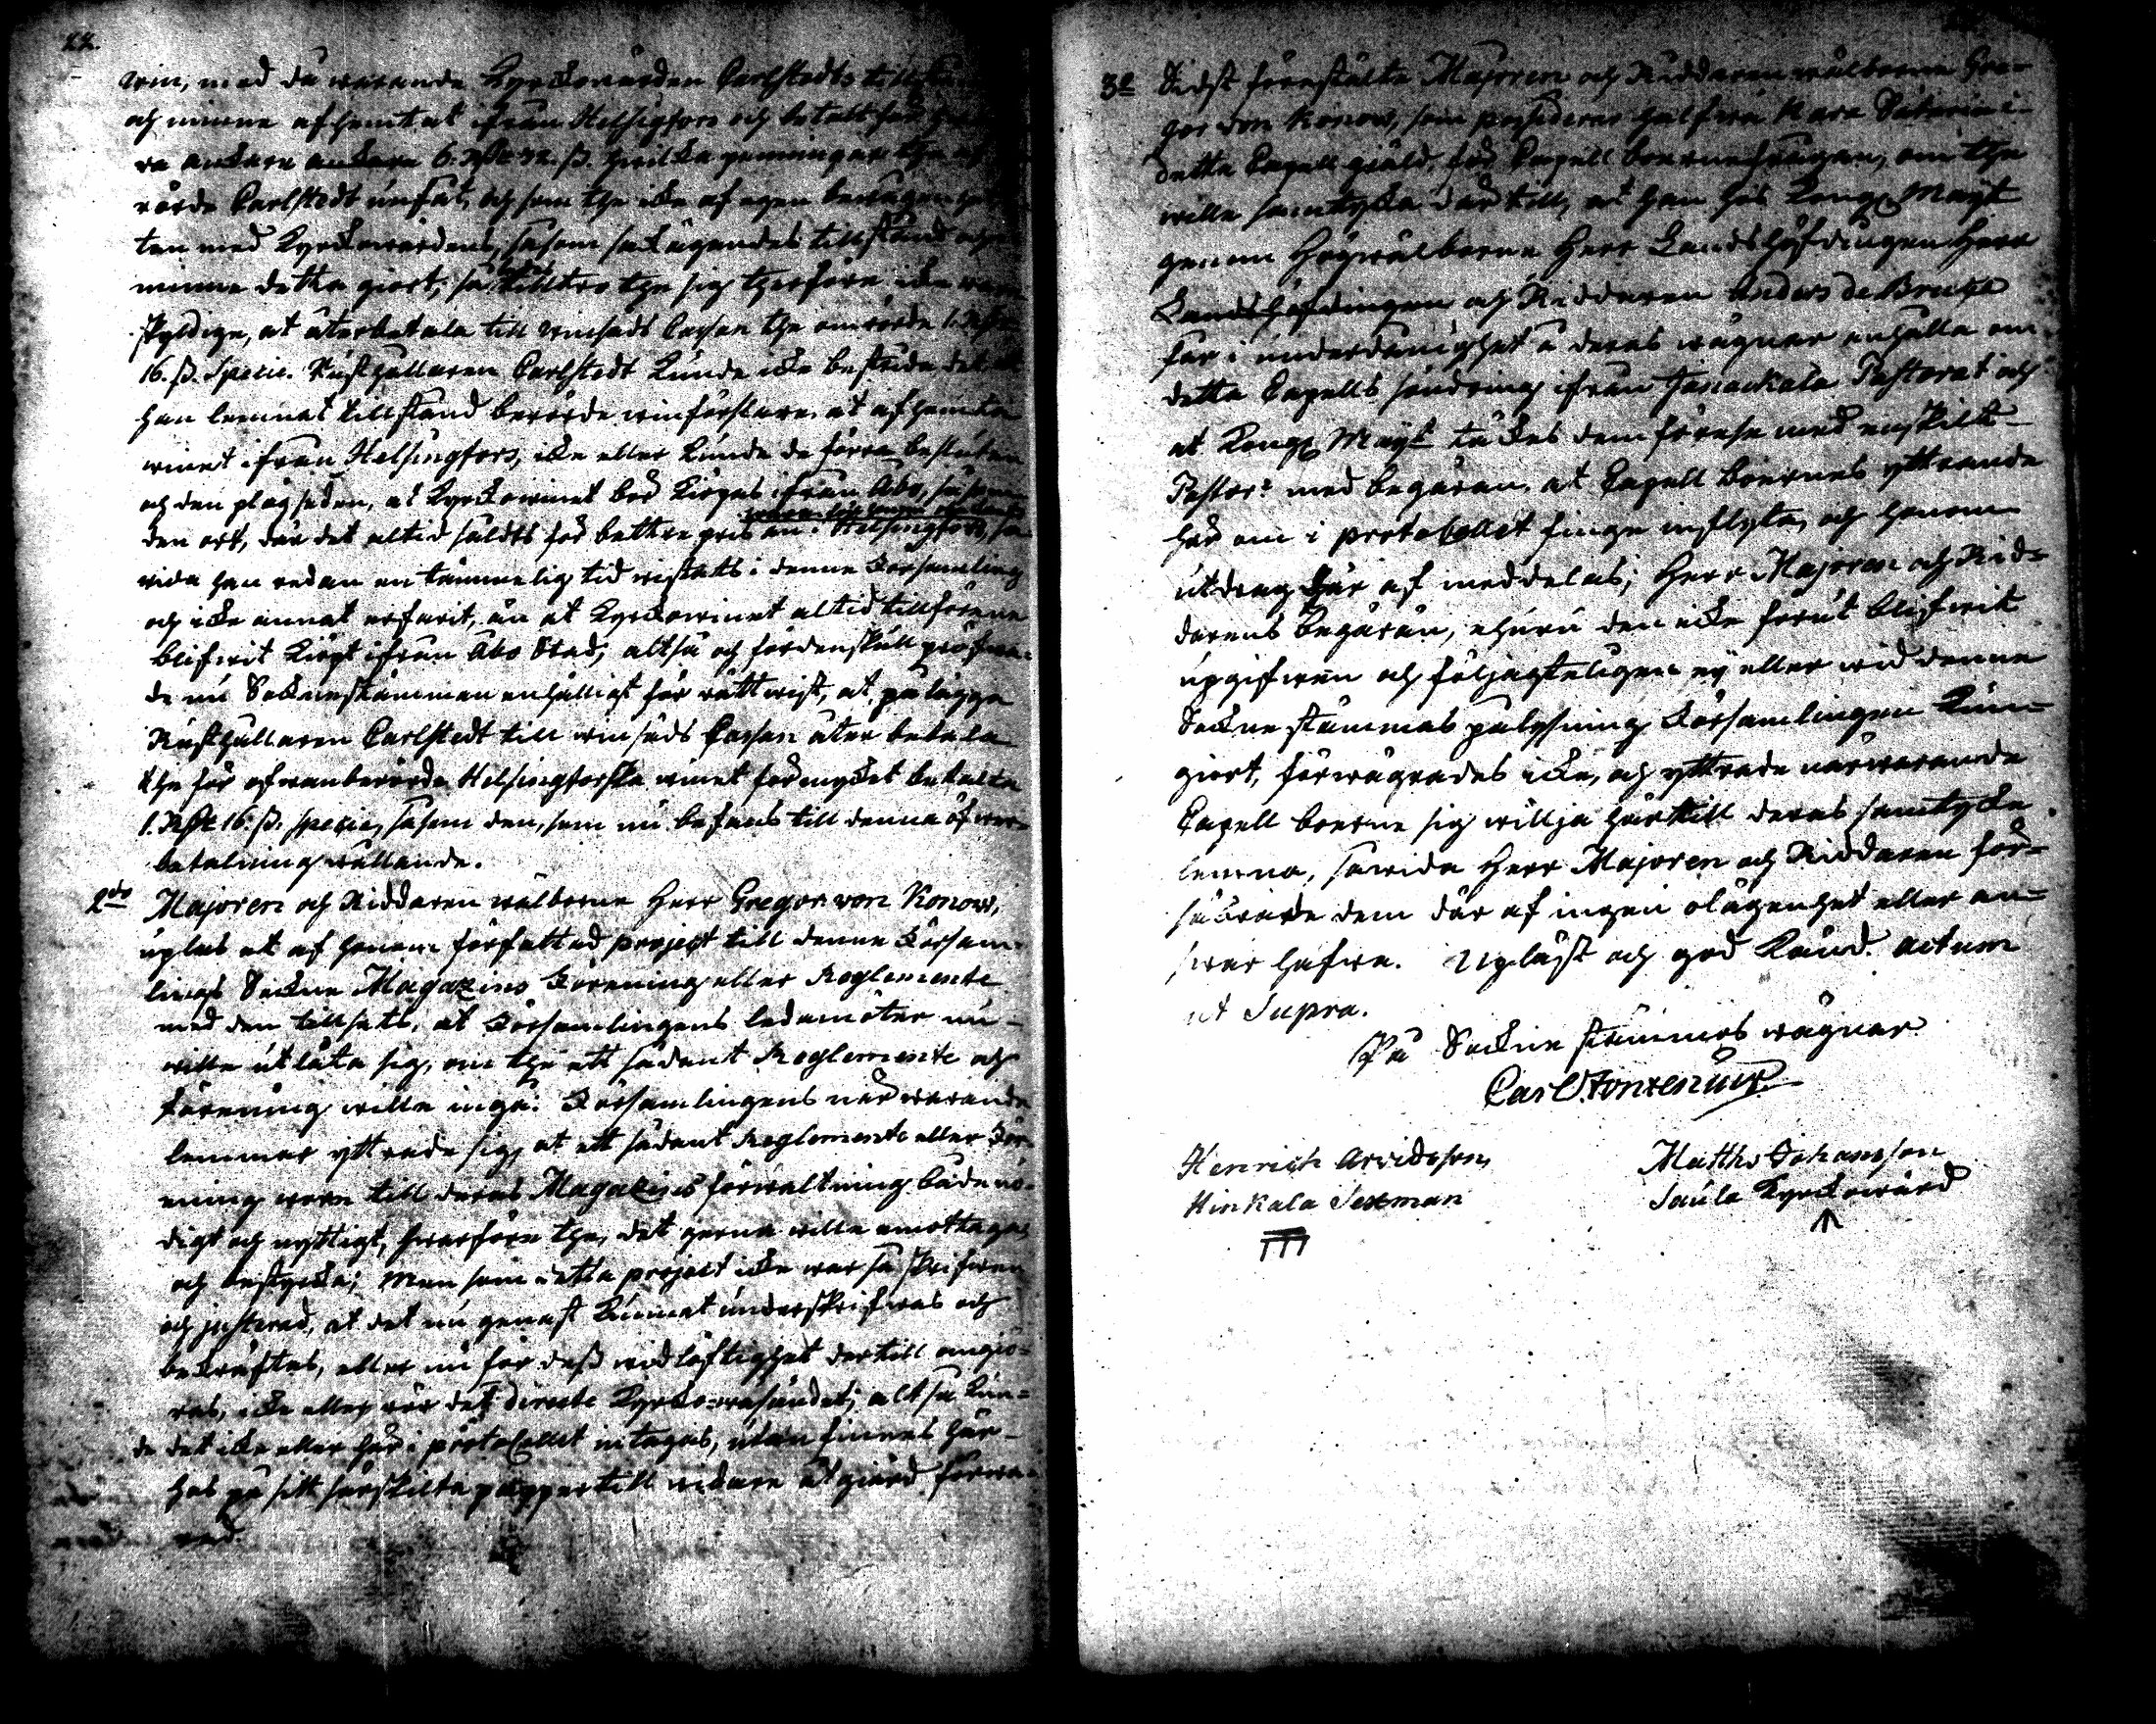 22.
win, med då warande Kyrckowärden Carlstedts
och minne afhemtat ifrån Helsingfors och betalt för
ra ankare ankare 6. Rdr 32. ß. hwilcka penningar the af
rörde Carlstedt unfåt, och som the icke af egen
ten med Kyrckowärdens, såsom tillstånd och
minne detta giort, så tilltro the sig therföre icke wara
skyldige, at återbetala till winsäds Cassan the omrörde 1. Rdr
16. ß. Specie. Rusthållaren Carlstedt kunde icke bestrida det at
han lemnat tillstånd berörde winförslare, at afhemta
winet ifrån Helsingfors, icke eller kunde de förra
och den plägseden, at Kyrckowinet bör kiöpas ifrån Åbo, såsom
den ort, där det altid såldts för bettre pris än i Helsingfors, så
wida han redan en tämmelig tid wistats i denne Församling
och icke annat erfarit, än at Kyrckowinet altid tillförene
blifwit kiöpt ifrån Åbo Stad; altså och fördenskull pröfwa-
de nu Sockenstämman enhälligt för rättwist, at pålägga
Rusthållaren Carlstedt till winsäds Cassan åter betala
the för ofwanberörde Helsingforska winet förmycket betalta
1. Rdr 16. ß. specie, såsom den, som nu befans till denna öfwer-
betalning wållande.
2do Majoren och Riddaren wälborne Herr Gregor von Konow,
uplas et af honom författad project till denne Försam-
lings Sockne Magazins Förening eller Reglemente
med den tillsats, at Församlingens ledamöter nu
wille utlåta sig, om the ett sådant Reglemente och
förening wille ingå: Församlingens närwarande
lemmar yttrade sig, at ett sådant Reglemente eller För-
ening wore till deras Magazins förwaltning både nö-
digt och nyttigt, hwarföre the, det gerna wille emottaga
och bestyrcka; Men som detta project icke war så skrifwen
och justerad, at det nu genast kunnat underskrifwas och
bekräftas, eller nu för dess widlöftighet dertill omgiö-
ras, icke eller rör det directe Kyrcko-wäsendet; altså kun-
de det icke eller här i protocollet intagas, utan finnes här-
hos på sitt särskilta papper till widare åtgiärd förwa-
rad.
3o Sidst förestälte Majoren och Riddaren wälborne Gre-
gor von Konow, som possiderar half wa Kara Säterie i
detta Capell giäld, för Capell boerne frågan, om the
wille samtycka där till, at han hos Kongl. Mayt
genom Högwälborne Herr Landshöfdingen Herr
Landshöfdingen och Riddaren Anders de Bruce
får i underdånighet å deras wägnar anhålla om
detta Capells söndring ifrån Janackala Pastorat och
at Kongl. Mayt täckes dem förese med enskilt
Pastor: med begäran, at Capell boernes yttrande
här om i protocollet finge inflyta, och honom
utdrag här af meddelas; Herr Majoren och Rid-
darens begäran, ehuru den icke förut blifwit
upgifwen och följagteligen ej eller wid denne
Sockne stämmas pålysning Församlingen kun-
giort, förwägrades icke, och yttrade närwarande
Capell boerne sig willja härtill deras samtycke
lemna, såwida Herr Majoren och Riddaren för-
säkrade dem där af ingen olägenhet eller an-
swar hafwa. Upläst och god känd. Actum
ut Supra.
På Sockne stämmos wägnar
Carl Fonzenius
Henrich Arvidsson
Hinkala Sexman
Matths Johansson
Saula Kyrckowärd